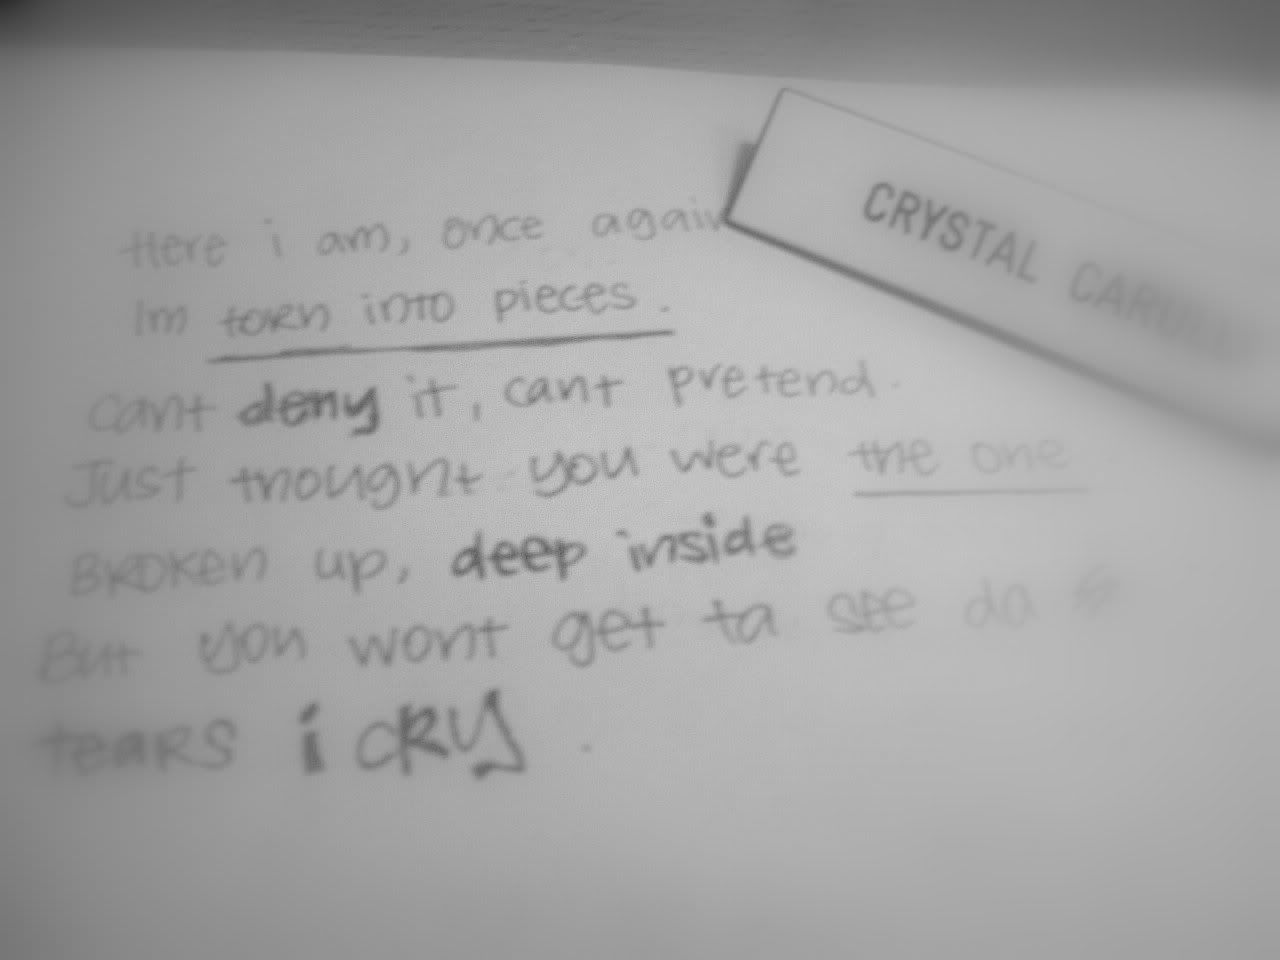 Here i am, once again
Im torn into pieces.
Cant deny it, cant pretend.
Just thought you were the one
Broken up, deep inside
But you wont get ta see da
tears i cRy.
CRYSTAL